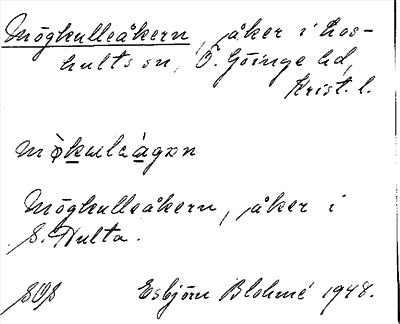 Mögkulleåkern, åker i Los-
hults sn, Ö. Göinge hd,
Krist. l.
Mögkulleåkern, åker i
S. Hulta.
SOS Esbjörn Blohmé 1948.